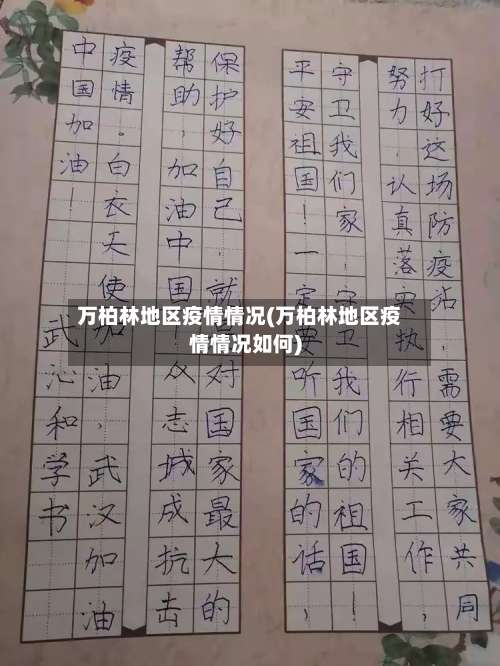 打好这场防疫站，需要大家共同
努力，认真落实执行相关工作，
守卫我们家，守卫我们的祖国！
平安祖国！一定要听国家的话，
保护好自己 就 对国家最大的
帮助，加油中国！众志城成抗击
疫情。白衣天使加油，武汉加油
中国加油！ 武沁和学书
万柏林地区疫情情况(万柏林地区疫
情情况如何)